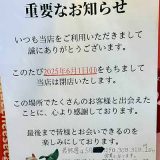 重要なお知らせ
いつも当店をご利用いただきまして
誠にありがとうございます。
このたび2025年6月11日をもちまして
当店は閉店いたします。
この場所でたくさんのお客様と出会えた
ことに、心より感謝しております。
最後まで皆様とお会いできるのを
楽しみにしております。